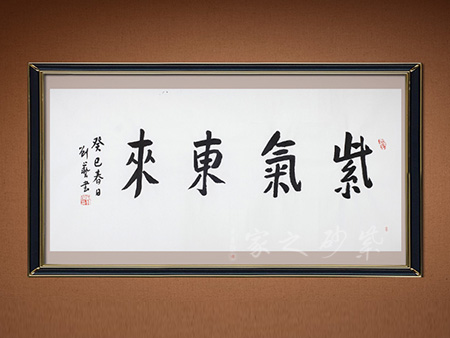 紫氣東來
癸巳春日
劉藝書
紫砂之家